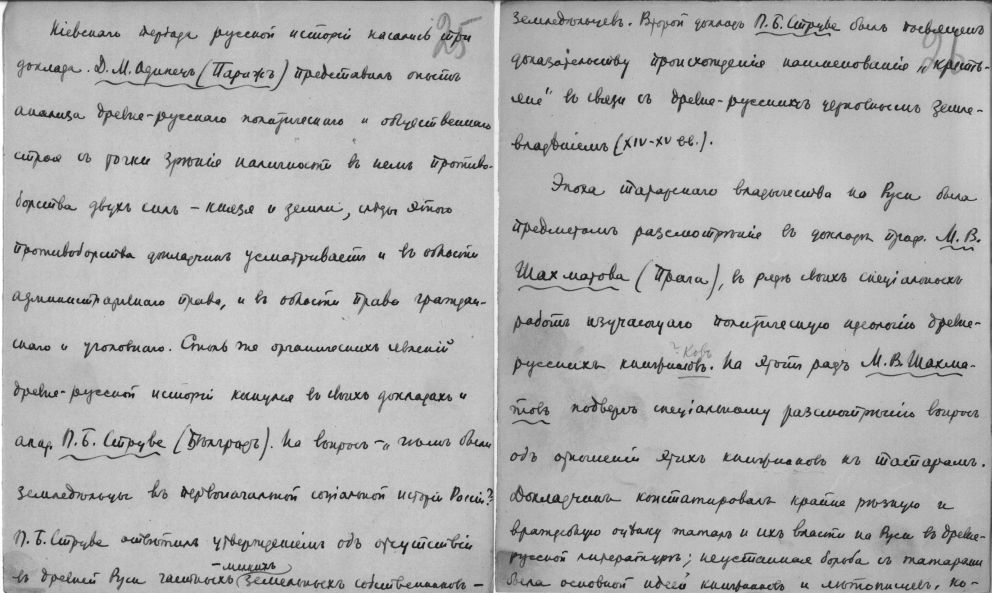 25
Кіевскаго періода русской исторіи касались три
доклада. Д. М. Одинецъ (Парижъ) представилъ опытъ
анализа древне-русскаго политическаго и общественнаго
строя съ точки зрѣнія наличности въ немъ противо-
борства двухъ силъ – князя и земли, слѣды этого
противоборства докладчикъ усматриваетъ и въ области
административнаго права, и въ области права граждан-
скаго и уголовнаго. Столь же органическихъ явленій
древне-русской исторіи коснулся въ своихъ докладахъ и
акад. П. Б. Струве (Бѣлградъ). На вопросъ – „чѣмъ были
земледѣльцы въ первоначальной соціальной исторіи Россіи?
П. Б. Струве отвѣтилъ утвержденіемъ объ отсутствіи
въ древней Руси частныхъ земельныхъ собственниковъ –
26
земледѣльцевъ. Второй докладъ П. Б. Струве былъ посвященъ
доказательству происхожденія наименованія „кресть-
яне" въ связи съ древне-русскимъ церковнымъ земле-
владѣніемъ (XIV-XV вв.).
Эпоха татарскаго владычества на Руси была
предметомъ разсмотрѣнія въ докладѣ проф. М. В.
Шахматова (Прага), въ рядѣ своихъ спеціальныхъ
работъ изучающаго политическую идеологію древне-
русскихъ книжниковъ. На этотъ разъ М. В. Шахма-
товъ подвергъ спеціальному разсмотрѣнію вопросъ
объ отношеніи этихъ книжниковъ къ татарамъ.
Докладчикъ констатировалъ крайне рѣзкую и
враждебную оцѣнку татаръ и ихъ власти на Руси въ древне-
русской литературѣ; неустанная борьба съ татарами
была основной идеей книжниковъ и лѣтописцевъ, ко-